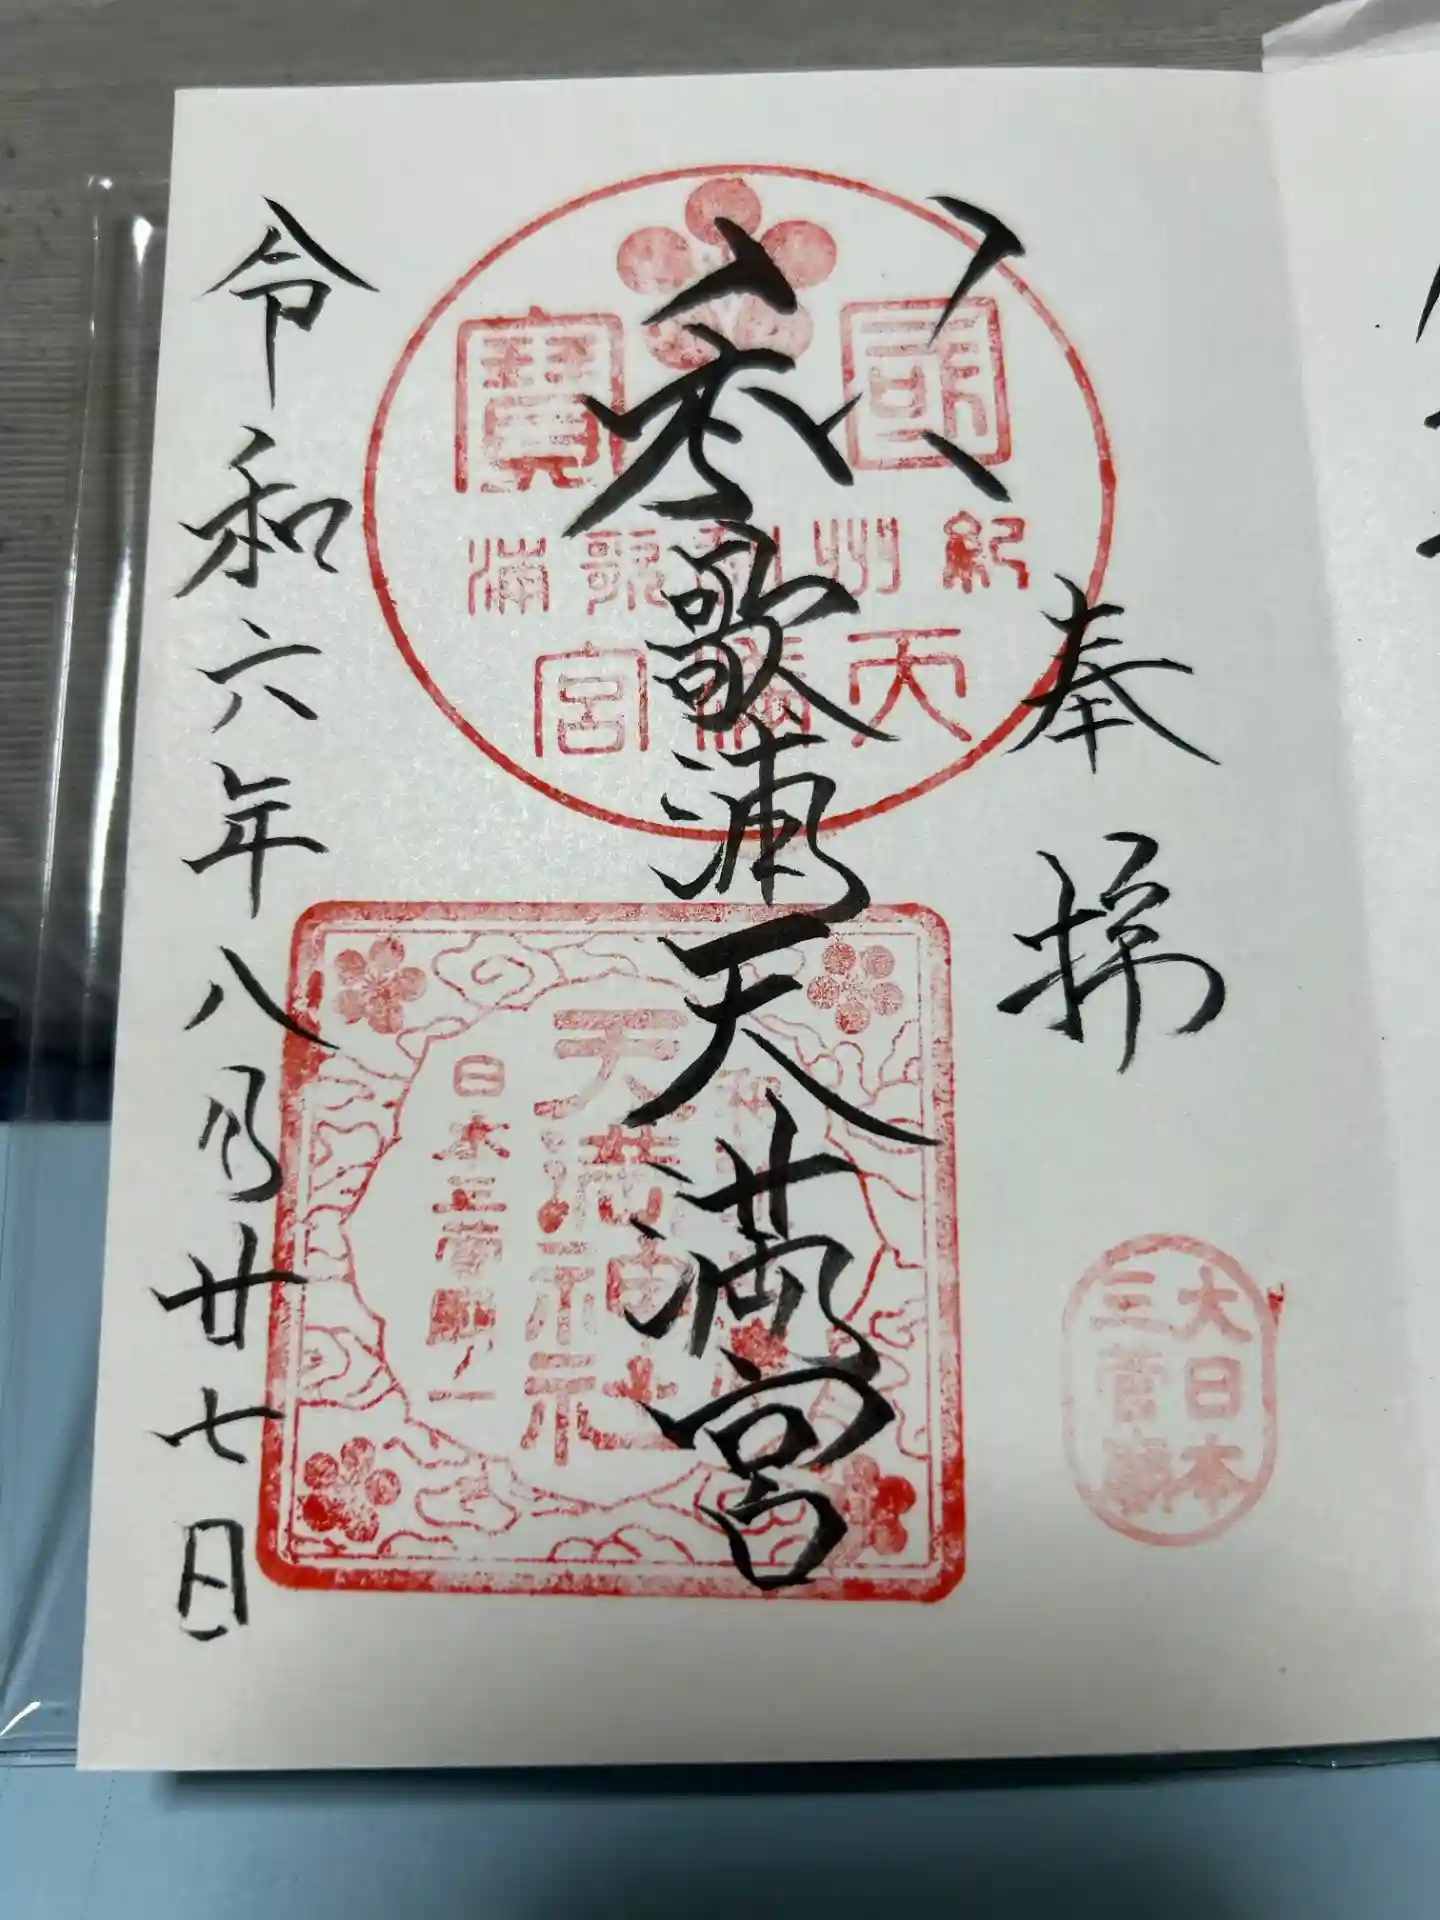 奉拝
和歌浦天満宮
令和六年八月廿七日
國寶
紀州和歌浦
天満宮
天満神社
日本三菅廟之一
大日本
三菅廟